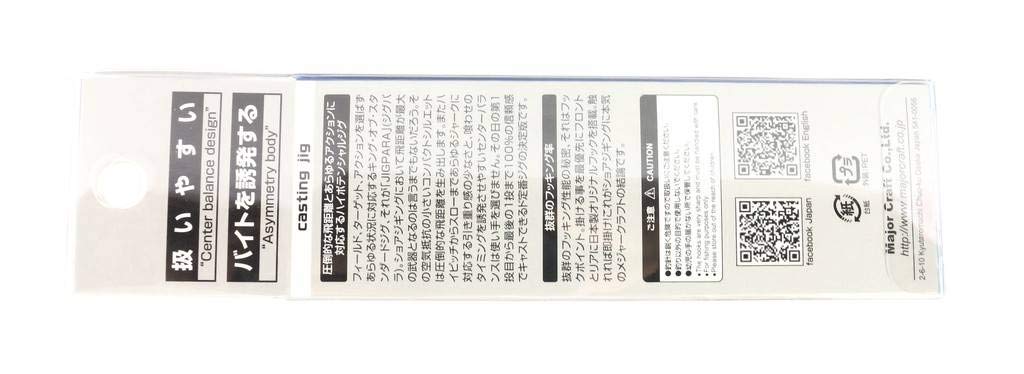 扱いやすい
"Center balance design"
バイトを誘発する
"Asymmetry body"
casting jig
圧倒的な飛距離とあらゆるアクションに
対応するハイポテンシャルジグ
フィールド、ターゲット、アクションを選ばず
あらゆる状況に対応するキング・オブ・スタ
ンダードジグ、それが「JIGPARA」(ジグパ
ラ)。ショアジギングにおいて飛距離が最大
の武器となるのは言うまでもないだろう。そ
の空気抵抗の小さいコンパクトシルエット
は圧倒的な飛距離を生み出します。またハ
イピッチからスローまであらゆるジャークに
対応する引き重り感の少なさと、喰わせの
タイミングを誘発させやすいセンターバラ
ンスは使い手を選びません。その日の第1
投目から最後の1投まで100%の信頼感
でキャストできるド定番ジグの決定版です。
抜群のフッキング率
抜群のフッキング性能の秘密、それはフッ
クポイント。掛ける事を最優先にフロント
とリアに日本製オリジナルフックを搭載。触
れれば即掛け!これがショアジギングに本気
のメジャークラフトの結論です。
ご注意 CAUTION
●釣針は鋭く危険ですので取扱いにご注意ください。
●釣り以外の目的で使用しないでください。
●幼児の手の届かない所で保管してください。
●The hooks are very sharp and must be handled with care.
●For fishing purposes only.
●Please store out of the reach of children.
facebook Japan
facebook English
紙
台紙
プラ
外袋:PET
Major Craft Co.,Ltd.
http://www.majorcraft.co.jp